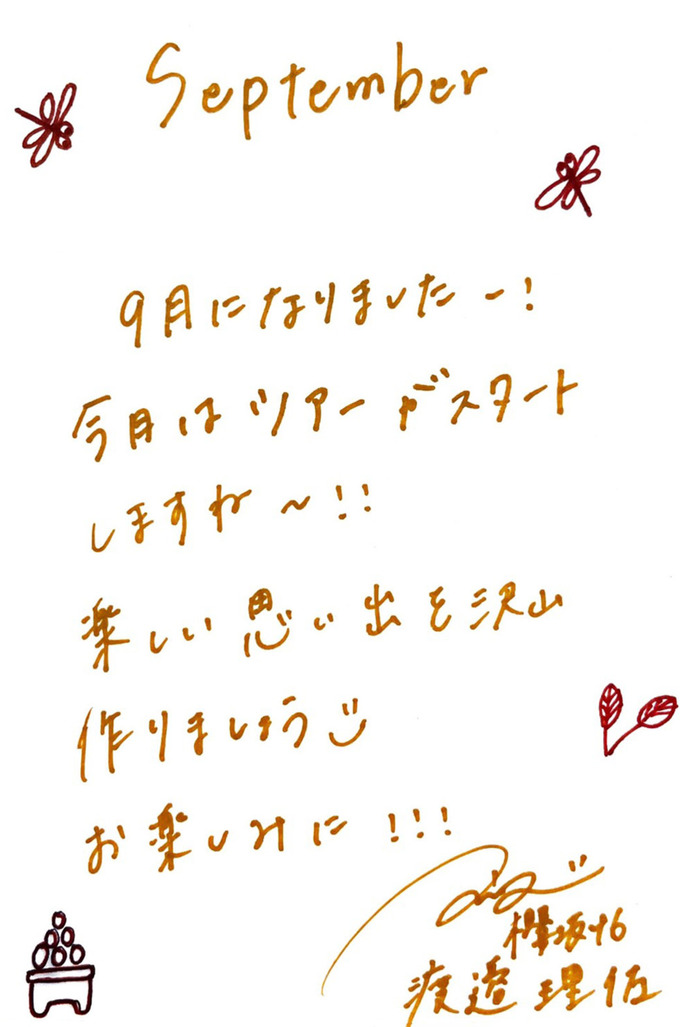 September
9月になりましたー!
今月はツアーがスタート
しますね〜!!
楽しい思い出を沢山
作りましょう
お楽しみに!!!
欅坂46
渡邉理佐